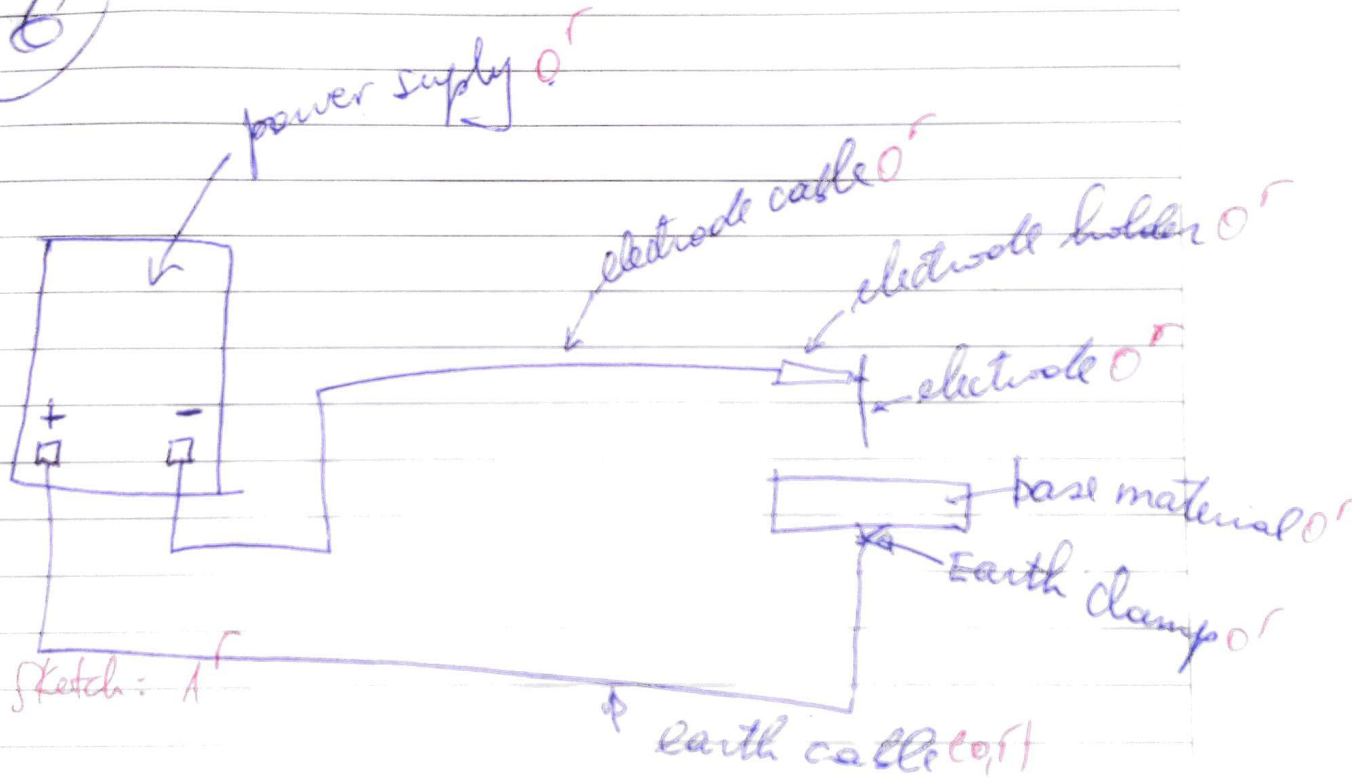 6
power suply
electrode cable
electrode holder
electrode
+ -
base material
Earth clamp
Sketch:
earth cable